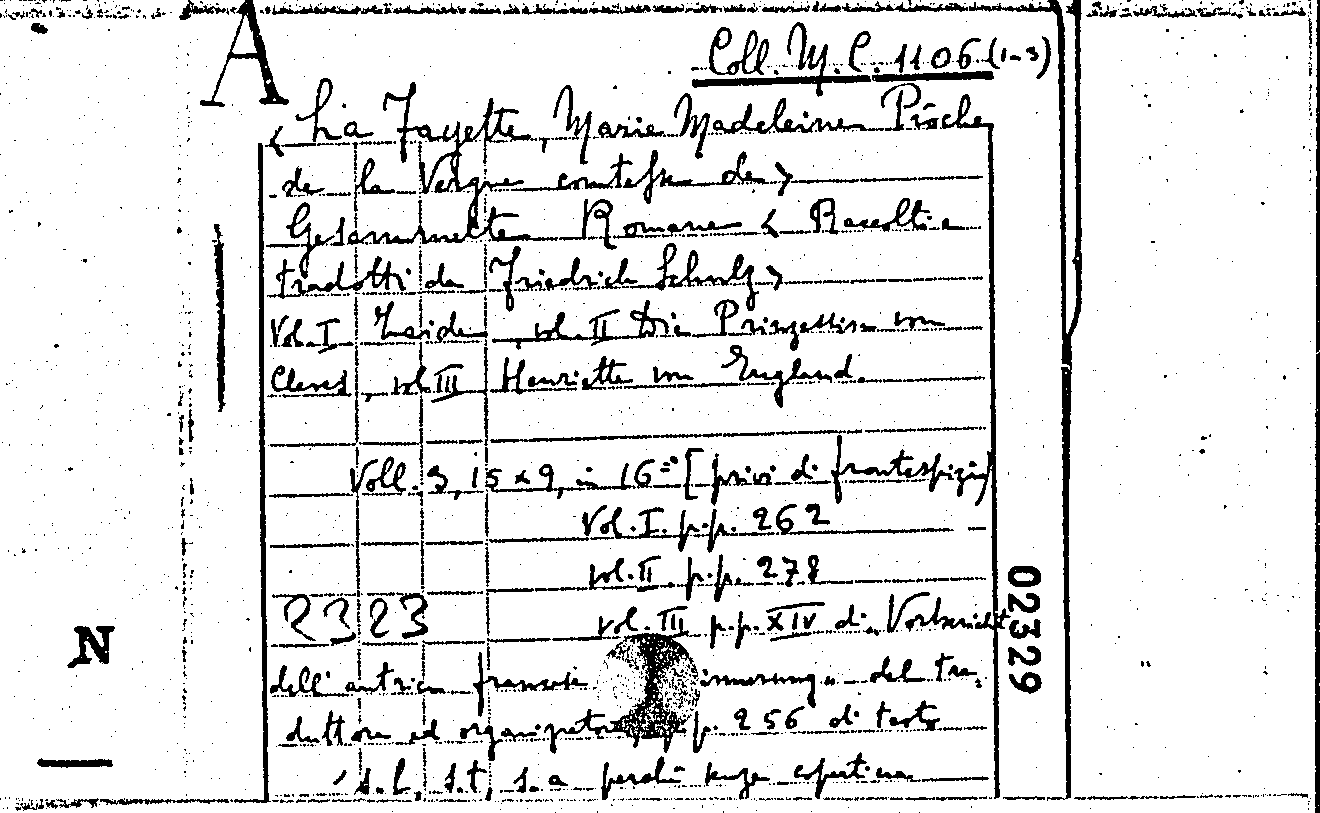 A
Coll. M. C. 1106 (1-3)
< La Fayette, Marie Madeleine Pioche
de la Vergne comtesse de >
Gesammelte Romane < Raccolti e
tradotti da Friedrich Schulz >
Vol. I Zaide, vol. II Die Prinzessin von
Cleves, vol III Henriette von England.
Voll. 3, 15 x 9, in 16=° [privi di frontespizio]
Vol. I. p.p. 262
vol. II. p.p. 278
2323 vol. III p.p. XIV di „Vorbericht
02329
N
dell' autrice francese innerung" del tra-
duttore ed organizzatore, p. 256 di testo
s.l., s.t, s.a perchè senza copertina